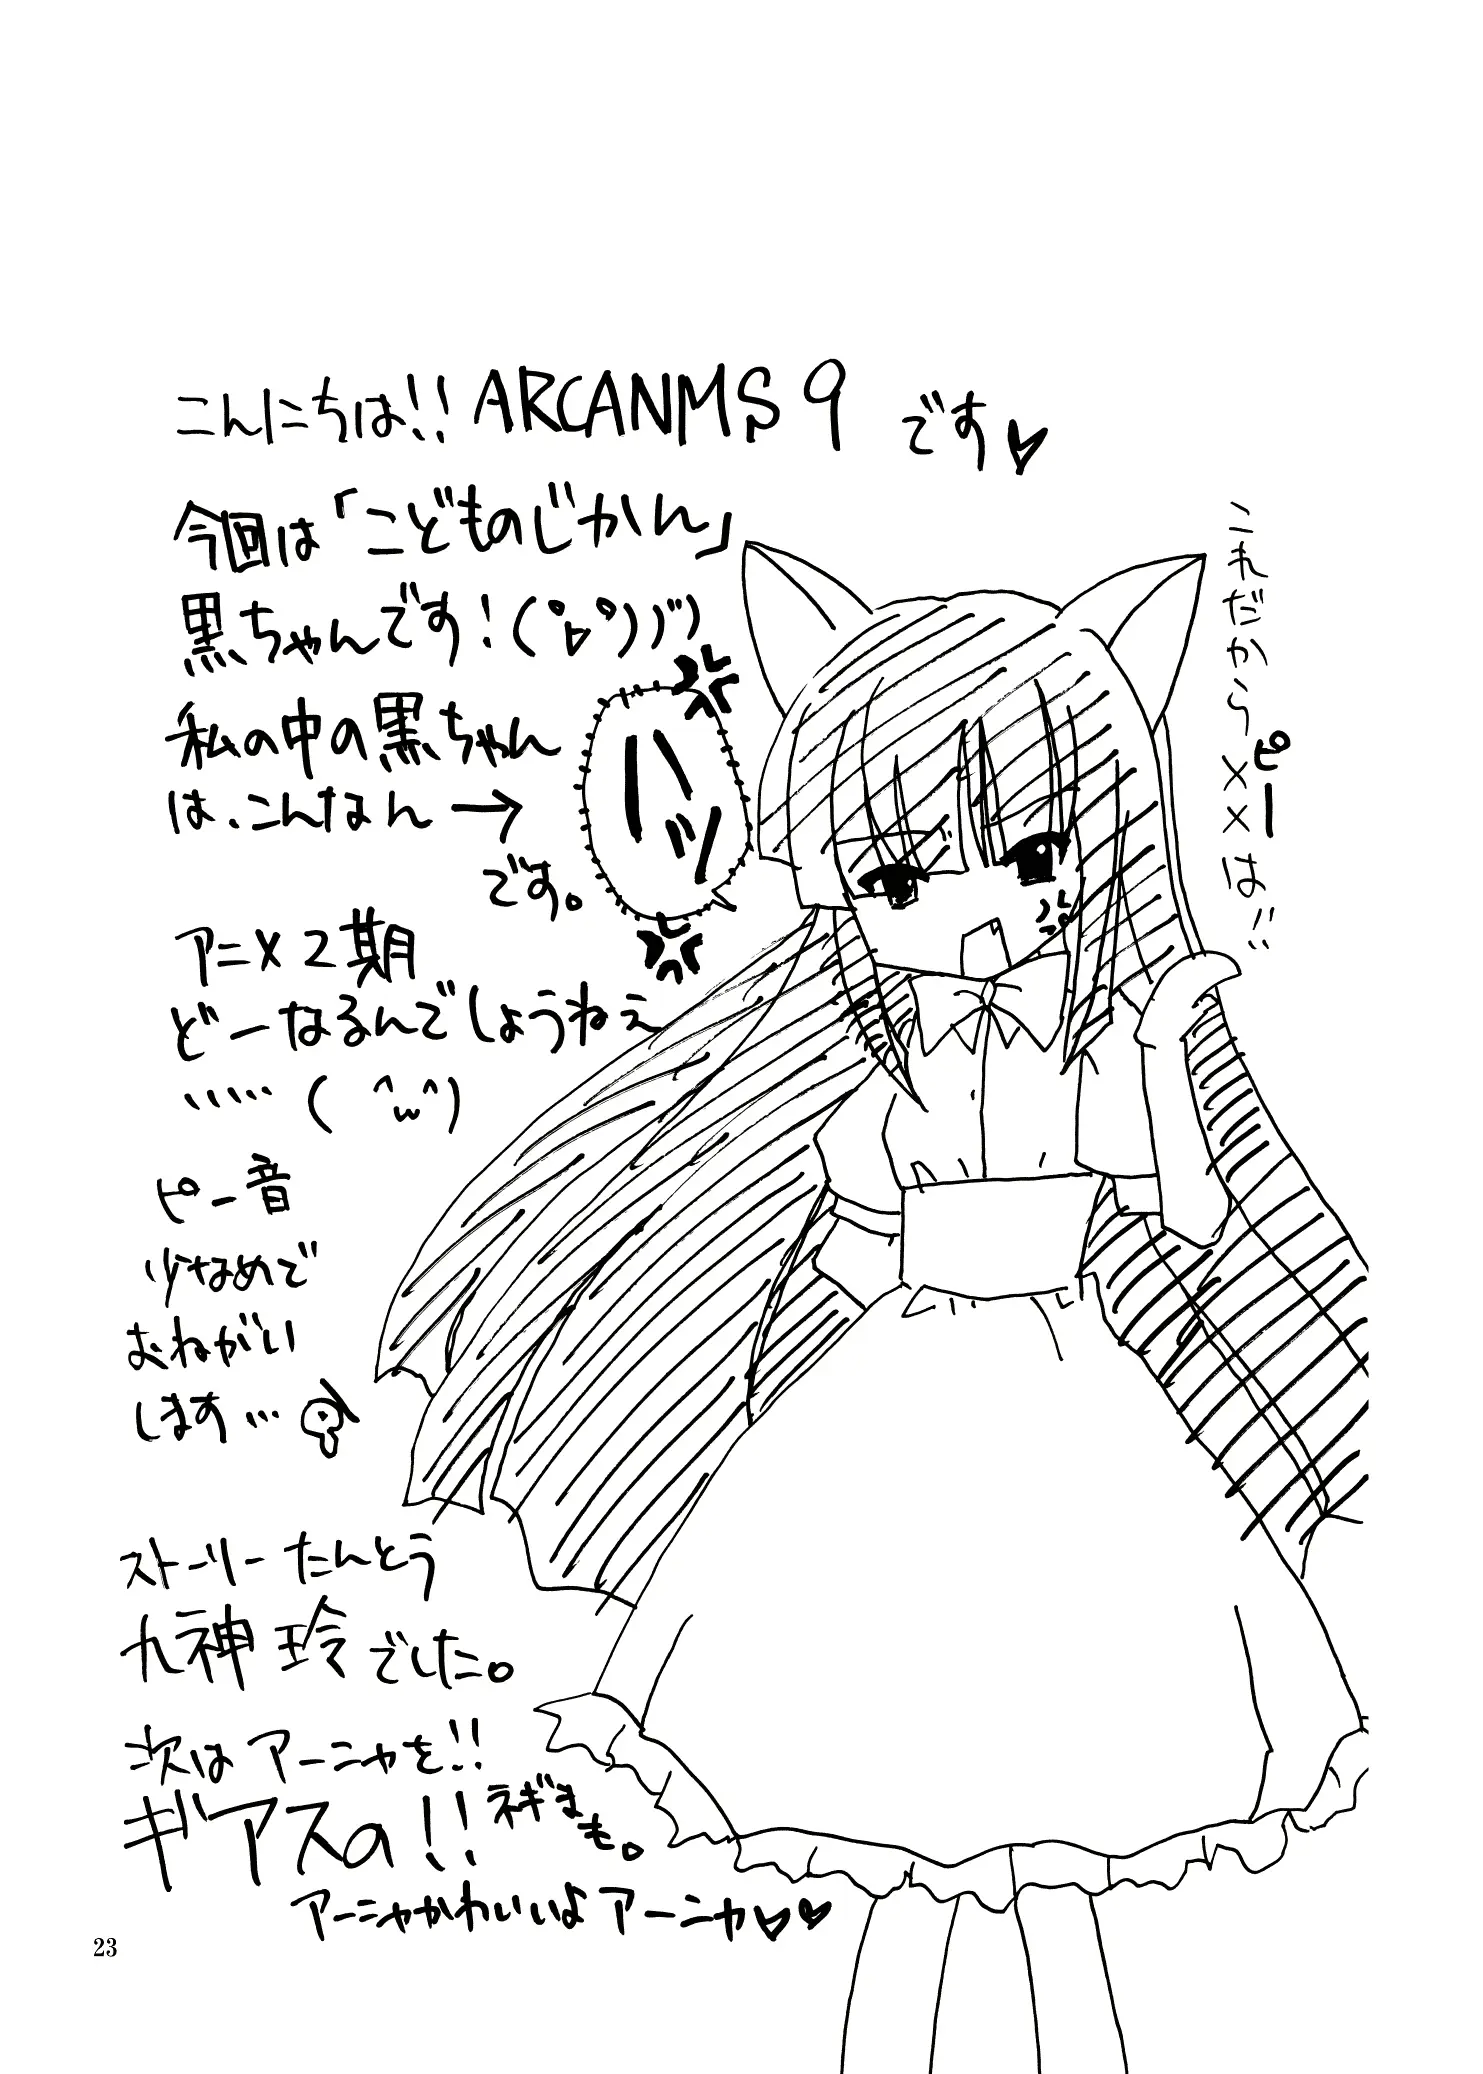 こんにちは!! ARCANMS 9 です♥
今回は「こどものじかん」
黒ちゃんです!(ﾟ▽ﾟ)ノ゙)
私の中の黒ちゃん
は、こんなん→
です。
アニメ2期
どーなるんでしょうねぇ
・・・・・( ^w^)
ピー音
少なめで
おねがい
します…
ストーリーたんとう
九神 玲でした。
次はアーニャを!!
ギアスの!! ネギま
も。
アーニャかわいいよアーニャ♥♥
ハッ
これだから××は!!
ピー
23